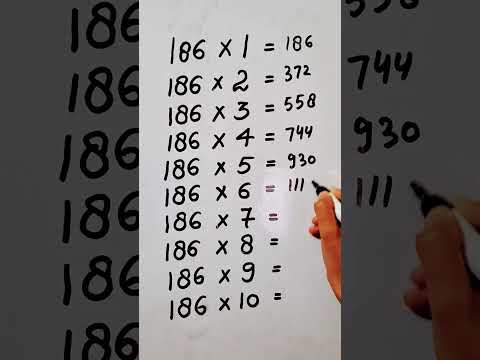 186 × 1 = 186
186 × 2 = 372
186 × 3 = 558
186 × 4 = 744
186 × 5 = 930
186 × 6 = 111
186 × 7 =
186 × 8 =
186 × 9 =
186 × 10 =